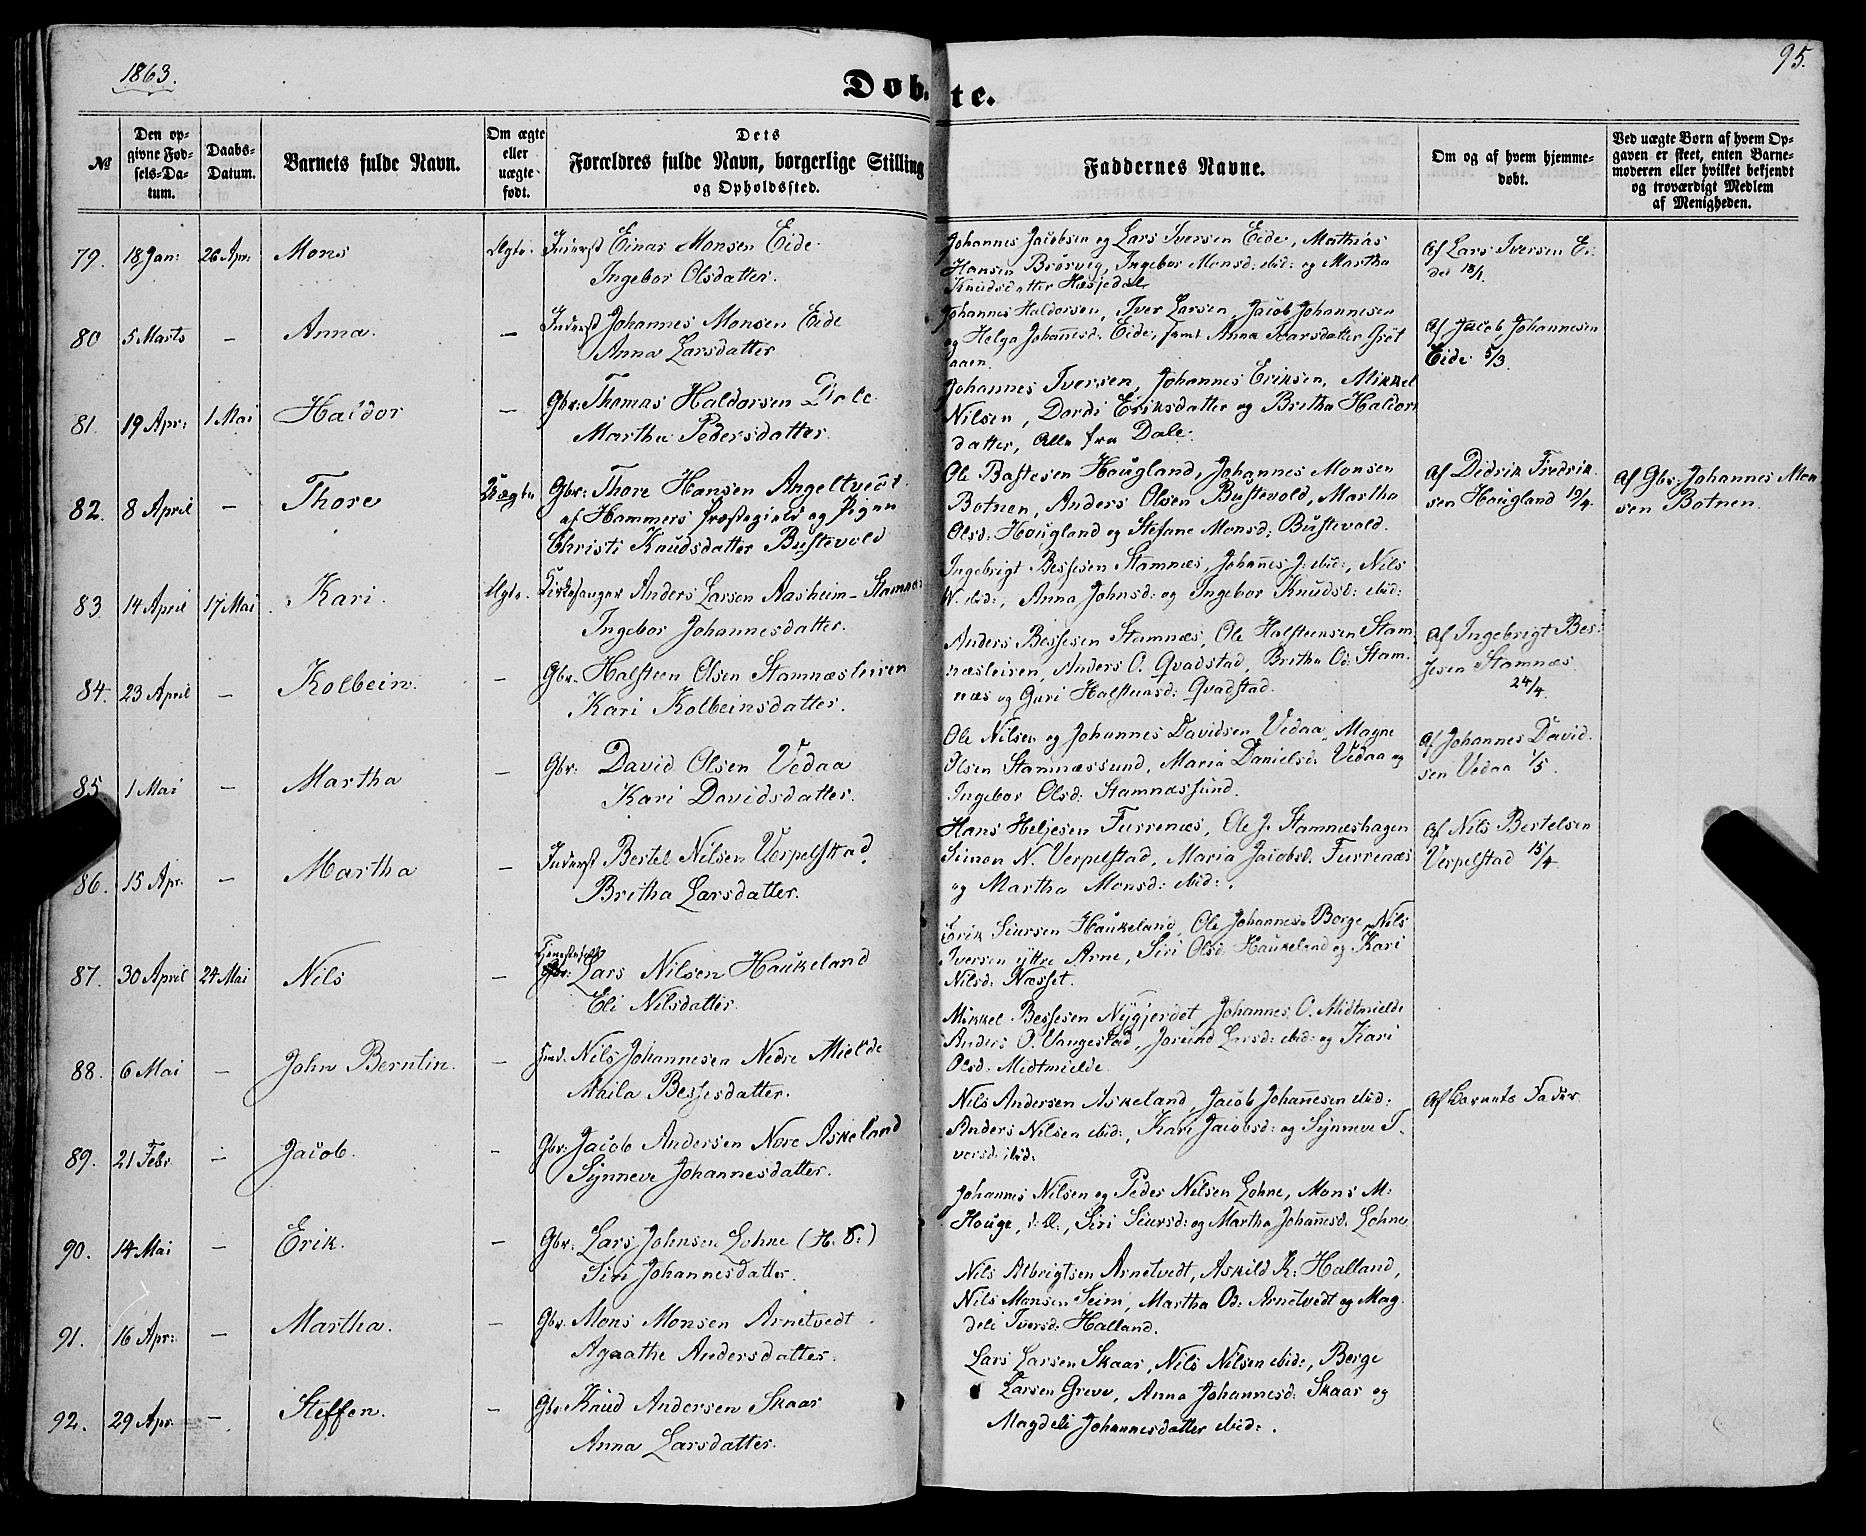 1863.
95.
Døbte.
№
Den opgivne Fødsels-Datum.
Daabs-Datum.
Barnets fulde Navn.
Om ægte eller uægte født.
Dets Forældres fulde Navn, borgerlige Stilling og Opholdssted.
Faddernes Navne.
Om og af hvem hjemmedøbt.
Ved uægte Børn af hvem Opgaven er skeet, enten Barnemoderen eller hvilket bekjendt og troværdigt Medlem af Menigheden.
79. 18 Jan: 26 Apr: Mons Ægte. Inderst Einar Monsen Eide
Ingebor Olsdatter.
Johannes Jacobsen og Lars Iversen Eide, Mathias
Hansen Brørvig, Ingebor Monsd: ibid: og Martha
Knudsdatter Hæsjedal
Af Lars Iversen Ei-
de 18/1.
80 5 Marts – Anna. – Inderst Johannes Monsen Eide
Anna Larsdatter
Johannes Haldorsen, Iver Larsen, Jacob Johannesen
og Helga Johannesd. Eide, samt Anna Ivarsdatter
aaen.
Af Jacob Johannesen
Eide 5/3.
81. 19 Apr: 1 Mai Haldor – Gbr: Thomas Haldorsen Dale
Martha Pedersdatter.
Johannes Iversen, Johannes Eriksen, Mikkel
Nilsen, Dordi Eriksdatter og Britha Haldors
datter, Alle fra Dale.
82. 8 April – Thore Uægte Gbr: Thore Hansen Angeltvedt
af Hammers Præstegield og Pigen
Christi Knudsdatter Bustevold
Ole Bastesen Hougland, Johannes Monsen
Botnen, Anders Olsen Bustevold, Martha
Olsd: Hougland og Stefane Monsd: Bustevold.
Af Didrik Fredrik
sen Hougland 19/4.
Af Gbr. Johannes Mon
sen Botnen.
83. 14 April 17 Mai Kari. Ægte. Kirkesanger Anders Larsen Aasheim – Stamnæs
Ingebor Johannesdatter.
Ingebrigt Bessesen Stamnæs, Johannes J. ibid:, Nils
N. ibid:, Anna Johnsd: og Ingebor Knudsd: ibid:
84. 23 April – Kolbein. – Gbr. Halsteen Olsen Stamnæsleiren
Kari Kolbeinsdatter.
Anders Bessesen Stamnæs, Ole Halsteensen Stam
næsleiren, Anders O. Qvadstad, Britha Od: Stam
næs og Guri Halsteensd: Qvadstad.
Af Ingebrigt Bes-
sesen Stamnæs
24/4.
85 1 Mai – Martha – Gbr: David Olsen Vedaa
Kari Davidsdatter.
Ole Nilsen og Johannes Davidsen Vedaa, Magne
Olsen Stamnæssund, Maria Danielsd. Vedaa og
Ingebor Olsd: Stamnæssund.
Af Johannes David
sen Vedaa 1/5.
86. 15 Apr. – Martha – Inderst Bertel Nilsen Verpelstad,
Britha Larsdatter.
Hans Heljesen Furrenæs, Ole J. Stamnæshagen
Simon N. Verpelstad, Maria Jacobsd. Furrenæs
og Martha Monsd: ibid:.
Af Nils Bertelsen
Verpelstad 15/4.
87. 30 April 24 Mai Nils – Lars Nilsen Haukeland
Eli Nilsdatter.
Erik Siursen Haukeland, Ole Johannes. Borge, Nils
Iversen yttre Arne, Siri Olsd. Haukeland og Kari
Nilsd: Næsset.
88. 6 Mai – John Berntin. – Ind. Nils Johannesen Nedre Mielde
Maila Bessesdatter.
Mikkel Bessesen Nygjerdet, Johannes O. Midtmielde
Anders O. Vangestad, Jorund Larsd: ibid: og Kari
Olsd. Midtmielde.
89. 21 Febr – Jacob. – Gbr. Jacob Andersen Nore Askeland
Synneve Johannesdatter.
Nils Andersen Askeland, Jacob Johannesen ibid:
Anders Nilsen ibid:, Kari Jacobsd: og Synneve I-
versd: ibid:
Af Barnets Fader.
90. 14 Mai – Erik. – Gbr: Lars Johnsen Lohne (H. S.)
Siri Johannesdatter.
Johannes Nilsen og Peder Nilsen Lohne, Mons M:
Houge, Siri Siursd: og Martha Johannesd. Lohne
91. 16 Apr: – Martha. – Gbr. Mons Monsen Arnetvedt.
Agaathe Andersdatter.
Nils Albrigtsen Arnetvedt, Askild K: Halland,
Nils Monsen Seim, Martha Od: Arnetvedt og Mag
deli Iversd: Halland.
92. 29 Apr. – Steffen. – Gbr. Knud Andersen Skaar
Anna Larsdatter.
Lars Larsen Skaar, Nils Nilsen ibid:, Berge
Larsen Greve, Anna Johannesd. Skaar og
Magdeli Johannesdatter ibid:.